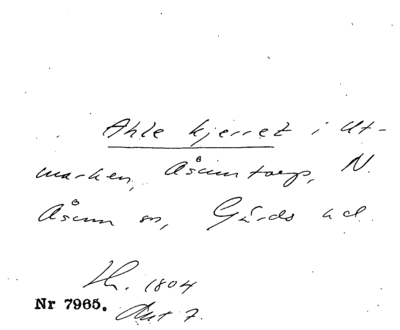 Ahle kjerret i Ut-
marken, Åsumtorp, N.
Åsum sn, Gärds hd.
Lh. 1804
Nr 7965. Akt 7.